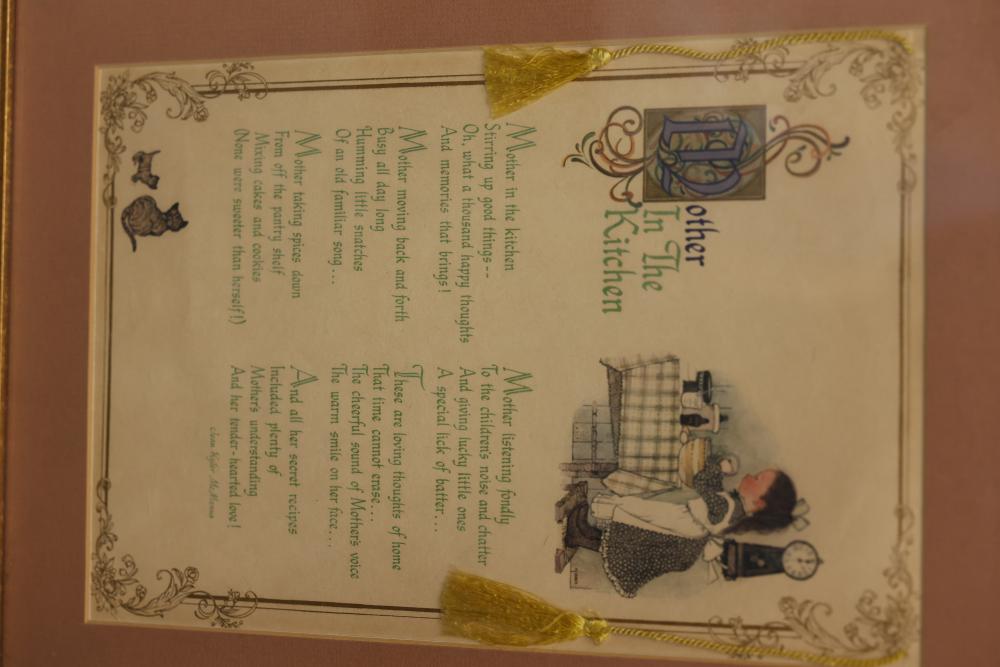 Mother
In The
Kitchen
Mother in the kitchen
Stirring up good things--
Oh, what a thousand happy thoughts
And memories that brings!
Mother moving back and forth
Busy all day long
Humming little snatches
Of an old familiar song...
Mother taking spices down
From off the pantry shelf
Mixing cakes and cookies
(None were sweeter than herself!)
Mother listening fondly
To the children's noise and chatter
And giving lucky little ones
A special lick of batter...
These are loving thoughts of home
That time cannot erase...
The cheerful sound of Mother's voice
The warm smile on her face...
And all her secret recipes
Included plenty of
Mother's understanding
And her tender-hearted love!